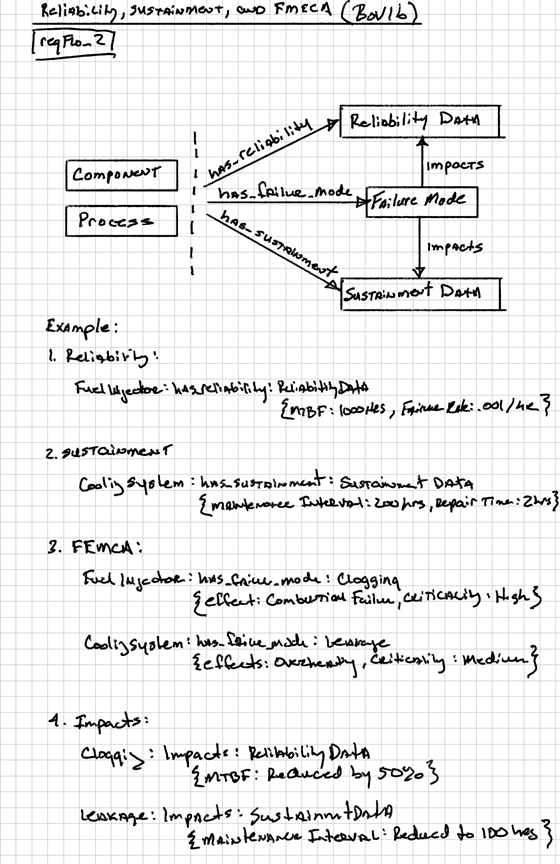 Reliability, Sustainment, and FMECA (BoV1b)
reqFlo_2
has_reliability
Reliability Data
Impacts
Component
has_failure_mode
Failure Mode
Process
has_sustainment
Impacts
Sustainment Data
Example:
1. Reliability:
Fuel Injector: has_reliability: Reliability Data
{MTBF: 1000 Hrs, Failure Rate: .001/hr}
2. Sustainment
Cooling System: has_sustainment: Sustainment DATA
{Maintenance Interval: 200 hrs, Repair Time: 2hrs}
3. FEMCA:
Fuel Injector: has_failure_mode: Clogging
{effect: Combustion Failure, Criticality: High}
Cooling System: has_failure_mode: Leakage
{effects: Overheating, Criticality: Medium}
4. Impacts:
Clogging: Impacts: Reliability DATA
{MTBF: Reduced by 50%}
Leakage: Impacts: Sustainment DATA
{Maintenance Interval: Reduced to 100 hrs}